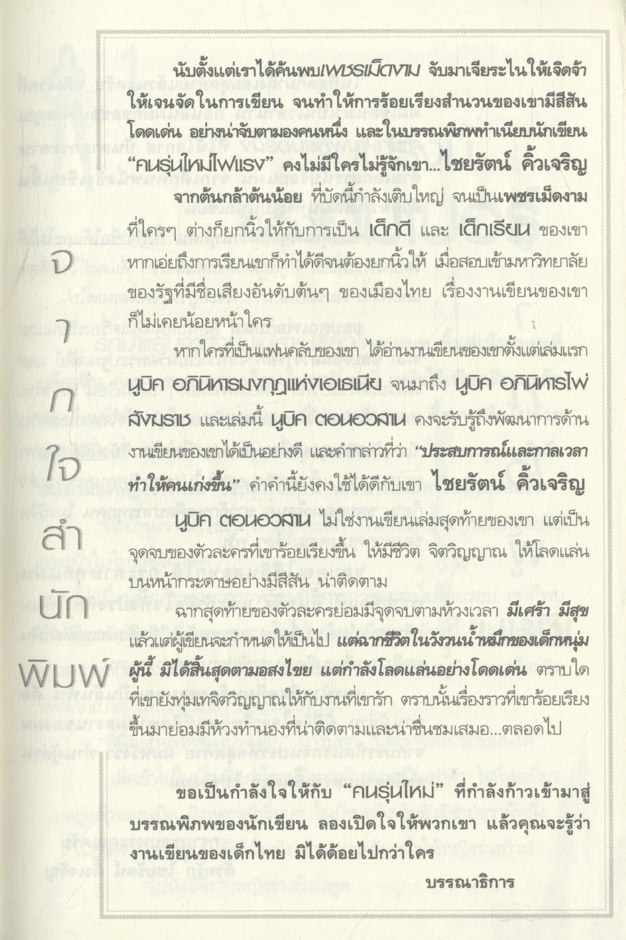 จากใจสำนักพิมพ์
นับตั้งแต่เราได้ค้นพบเพชรเม็ดงาม จับมาเจียระไนให้เจิดจ้า
ให้เจนจัดในการเขียน จนทำให้การร้อยเรียงสำนวนของเขามีสีสัน
โดดเด่น อย่างน่าจับตามองคนหนึ่ง และในบรรณพิภพทำเนียบนักเขียน
“คนรุ่นใหม่ไฟแรง” คงไม่มีใครไม่รู้จักเขา...ไชยรัตน์ คิ้วเจริญ
จากต้นกล้าต้นน้อย ที่บัดนี้กำลังเติบใหญ่ จนเป็นเพชรเม็ดงาม
ที่ใครๆ ต่างก็ยกนิ้วให้กับการเป็น เด็กดี และ เด็กเรียน ของเขา
หากเอ่ยถึงการเรียนเขาก็ทำได้ดีจนต้องยกนิ้วให้ เมื่อสอบเข้ามหาวิทยาลัย
ของรัฐที่มีชื่อเสียงอันดับต้นๆ ของเมืองไทย เรื่องงานเขียนของเขา
ก็ไม่เคยน้อยหน้าใคร
หากใครที่เป็นแฟนคลับของเขา ได้อ่านงานเขียนของเขาตั้งแต่เล่มแรก
นูบิค อภินิหารมงกุฎแห่งเอเธเนีย จนมาถึง นูบิค อภินิหารไพ่
สังฆราช และเล่มนี้ นูบิค ตอนอวสาน คงจะรับรู้ถึงพัฒนาการด้าน
งานเขียนของเขาได้เป็นอย่างดี และคำกล่าวที่ว่า “ประสบการณ์และกาลเวลา
ทำให้คนเก่งขึ้น” คำคำนี้ยังคงใช้ได้ดีกับเขา ไชยรัตน์ คิ้วเจริญ
นูบิค ตอนอวสาน ไม่ใช่งานเขียนเล่มสุดท้ายของเขา แต่เป็น
จุดจบของตัวละครที่เขาร้อยเรียงขึ้น ให้มีชีวิต จิตวิญญาณ ให้โลดแล่น
บนหน้ากระดาษอย่างมีสีสัน น่าติดตาม
ฉากสุดท้ายของตัวละครย่อมมีจุดจบตามห้วงเวลา มีเศร้า มีสุข
แล้วแต่ผู้เขียนจะกำหนดให้เป็นไป แต่ฉากชีวิตในวังวนน้ำหมึกของเด็กหนุ่ม
ผู้นี้ มิได้สิ้นสุดตามอสงไขย แต่กำลังโลดแล่นอย่างโดดเด่น ตราบใด
ที่เขายังทุ่มเทจิตวิญญาณให้กับงานที่เขารัก ตราบนั้นเรื่องราวที่เขาร้อยเรียง
ขึ้นมาย่อมมีห้วงทำนองที่น่าติดตามและน่าชื่นชมเสมอ...ตลอดไป
ขอเป็นกำลังใจให้กับ “คนรุ่นใหม่” ที่กำลังก้าวเข้ามาสู่
บรรณพิภพของนักเขียน ลองเปิดใจให้พวกเขา แล้วคุณจะรู้ว่า
งานเขียนของเด็กไทย มิได้ด้อยไปกว่าใคร
บรรณาธิการ